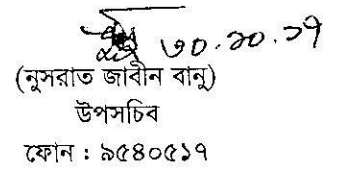 ৩০.১০.১৭
(নুসরাত জাবীন বানু)
উপসচিব
ফোন : ৯৫৪০৫১৭